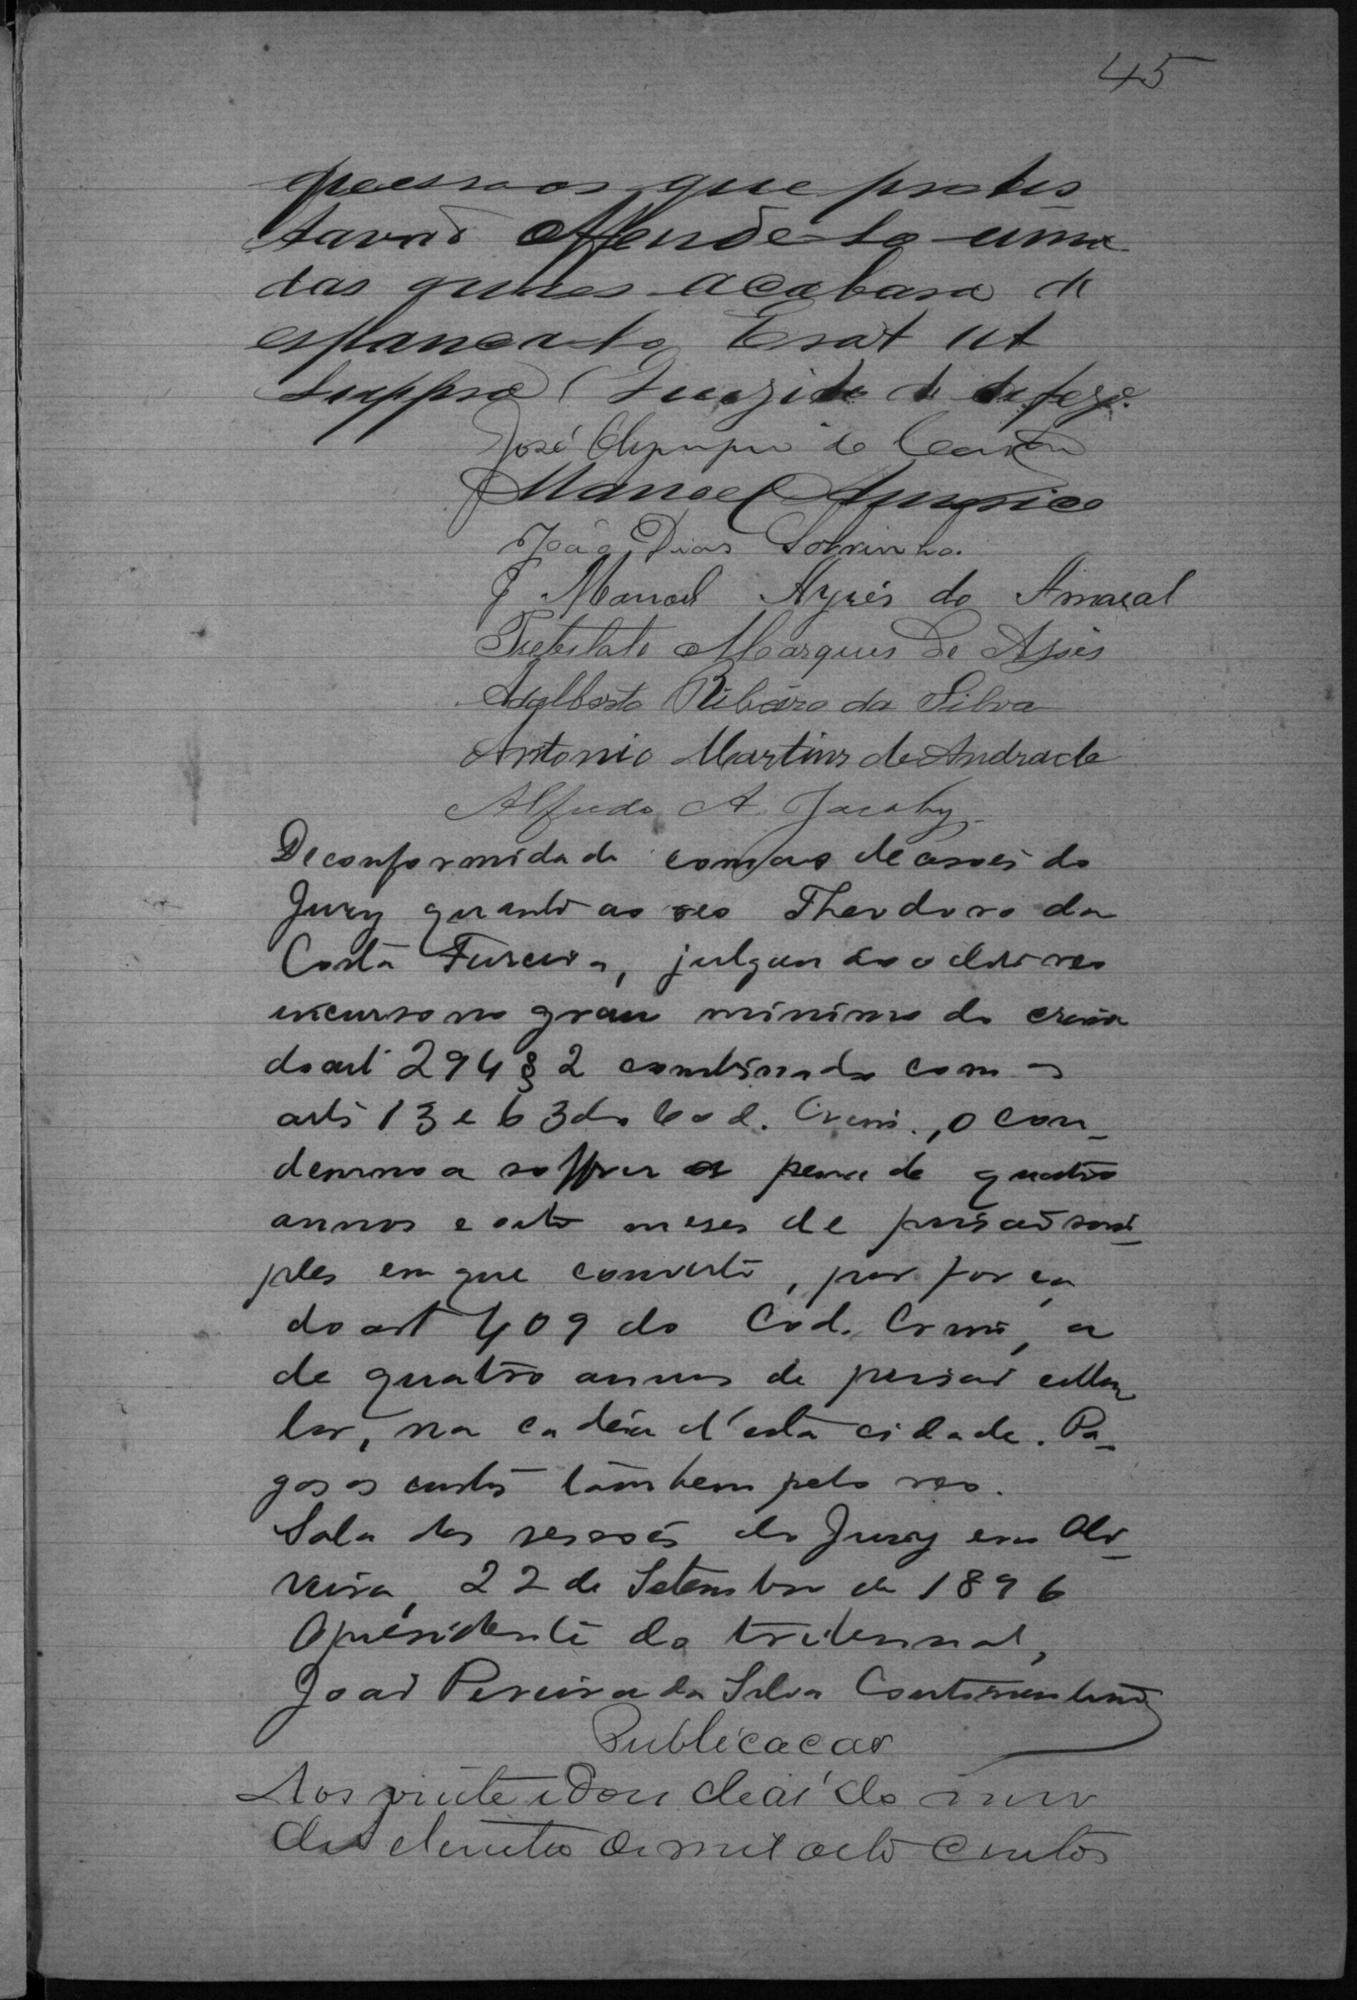 45
pessoas que protes
tavaõ offendelo uma
das quaes acabara de
espancalo, Erat ut
suppra de defeza.
José Olympio de Castro
Manoel Americo
João Dias Sobrinho.
Manoel Ayres do Amaral
Marques de Assis
Adalberto Ribeiro da Silva
Antonio Martins de Andrade
Alfredo A. Jacoby
De conformidade com as decisoes do
Jury quanto ao reo Theodoro da
Costa Pereira, julgando o dito reo
incurso no grau minimo do crime
do art 294 § 2 combinado com os
arts 13 e 63 do Cod. Crim., o con_
demno a soffrer a pena de quatro
annos e oito meses de prisaõ sim_
ples em que converti, por força
do art 409 do Cod. Crim, a
de quatro annos de prisaõ cellu
lar, na cadeia d'esta cidade. Pa_
gos as custas tambem pelo reo.
Sala das sessões do Jury em Oli_
veira, 22 de Setembro de 1896
O presidente do tribunal,
Joaõ Pereira da Silva Continentino
Publicacao
Aos vinte e dous dias do mez
de Setembro de mil oito centos